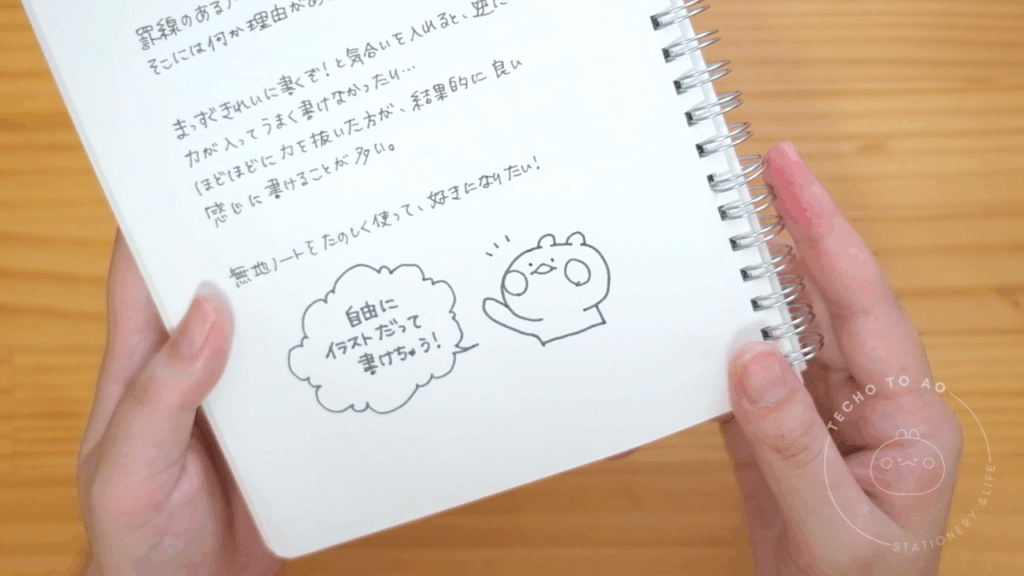 罫線のあるノ
そこには何か理由があ
まっすぐきれいに書くぞ!と気合いを入れると、逆に
力が入ってうまく書けなかったり…
ほどほどに力を抜いた方が、結果的に良い
感じに書けることが多い。
無地ノートをたのしく使って、好きになりたい!
自由に
イラストだって
書けちゃう!
TECHO TO AO
STATIONERY & LIFE